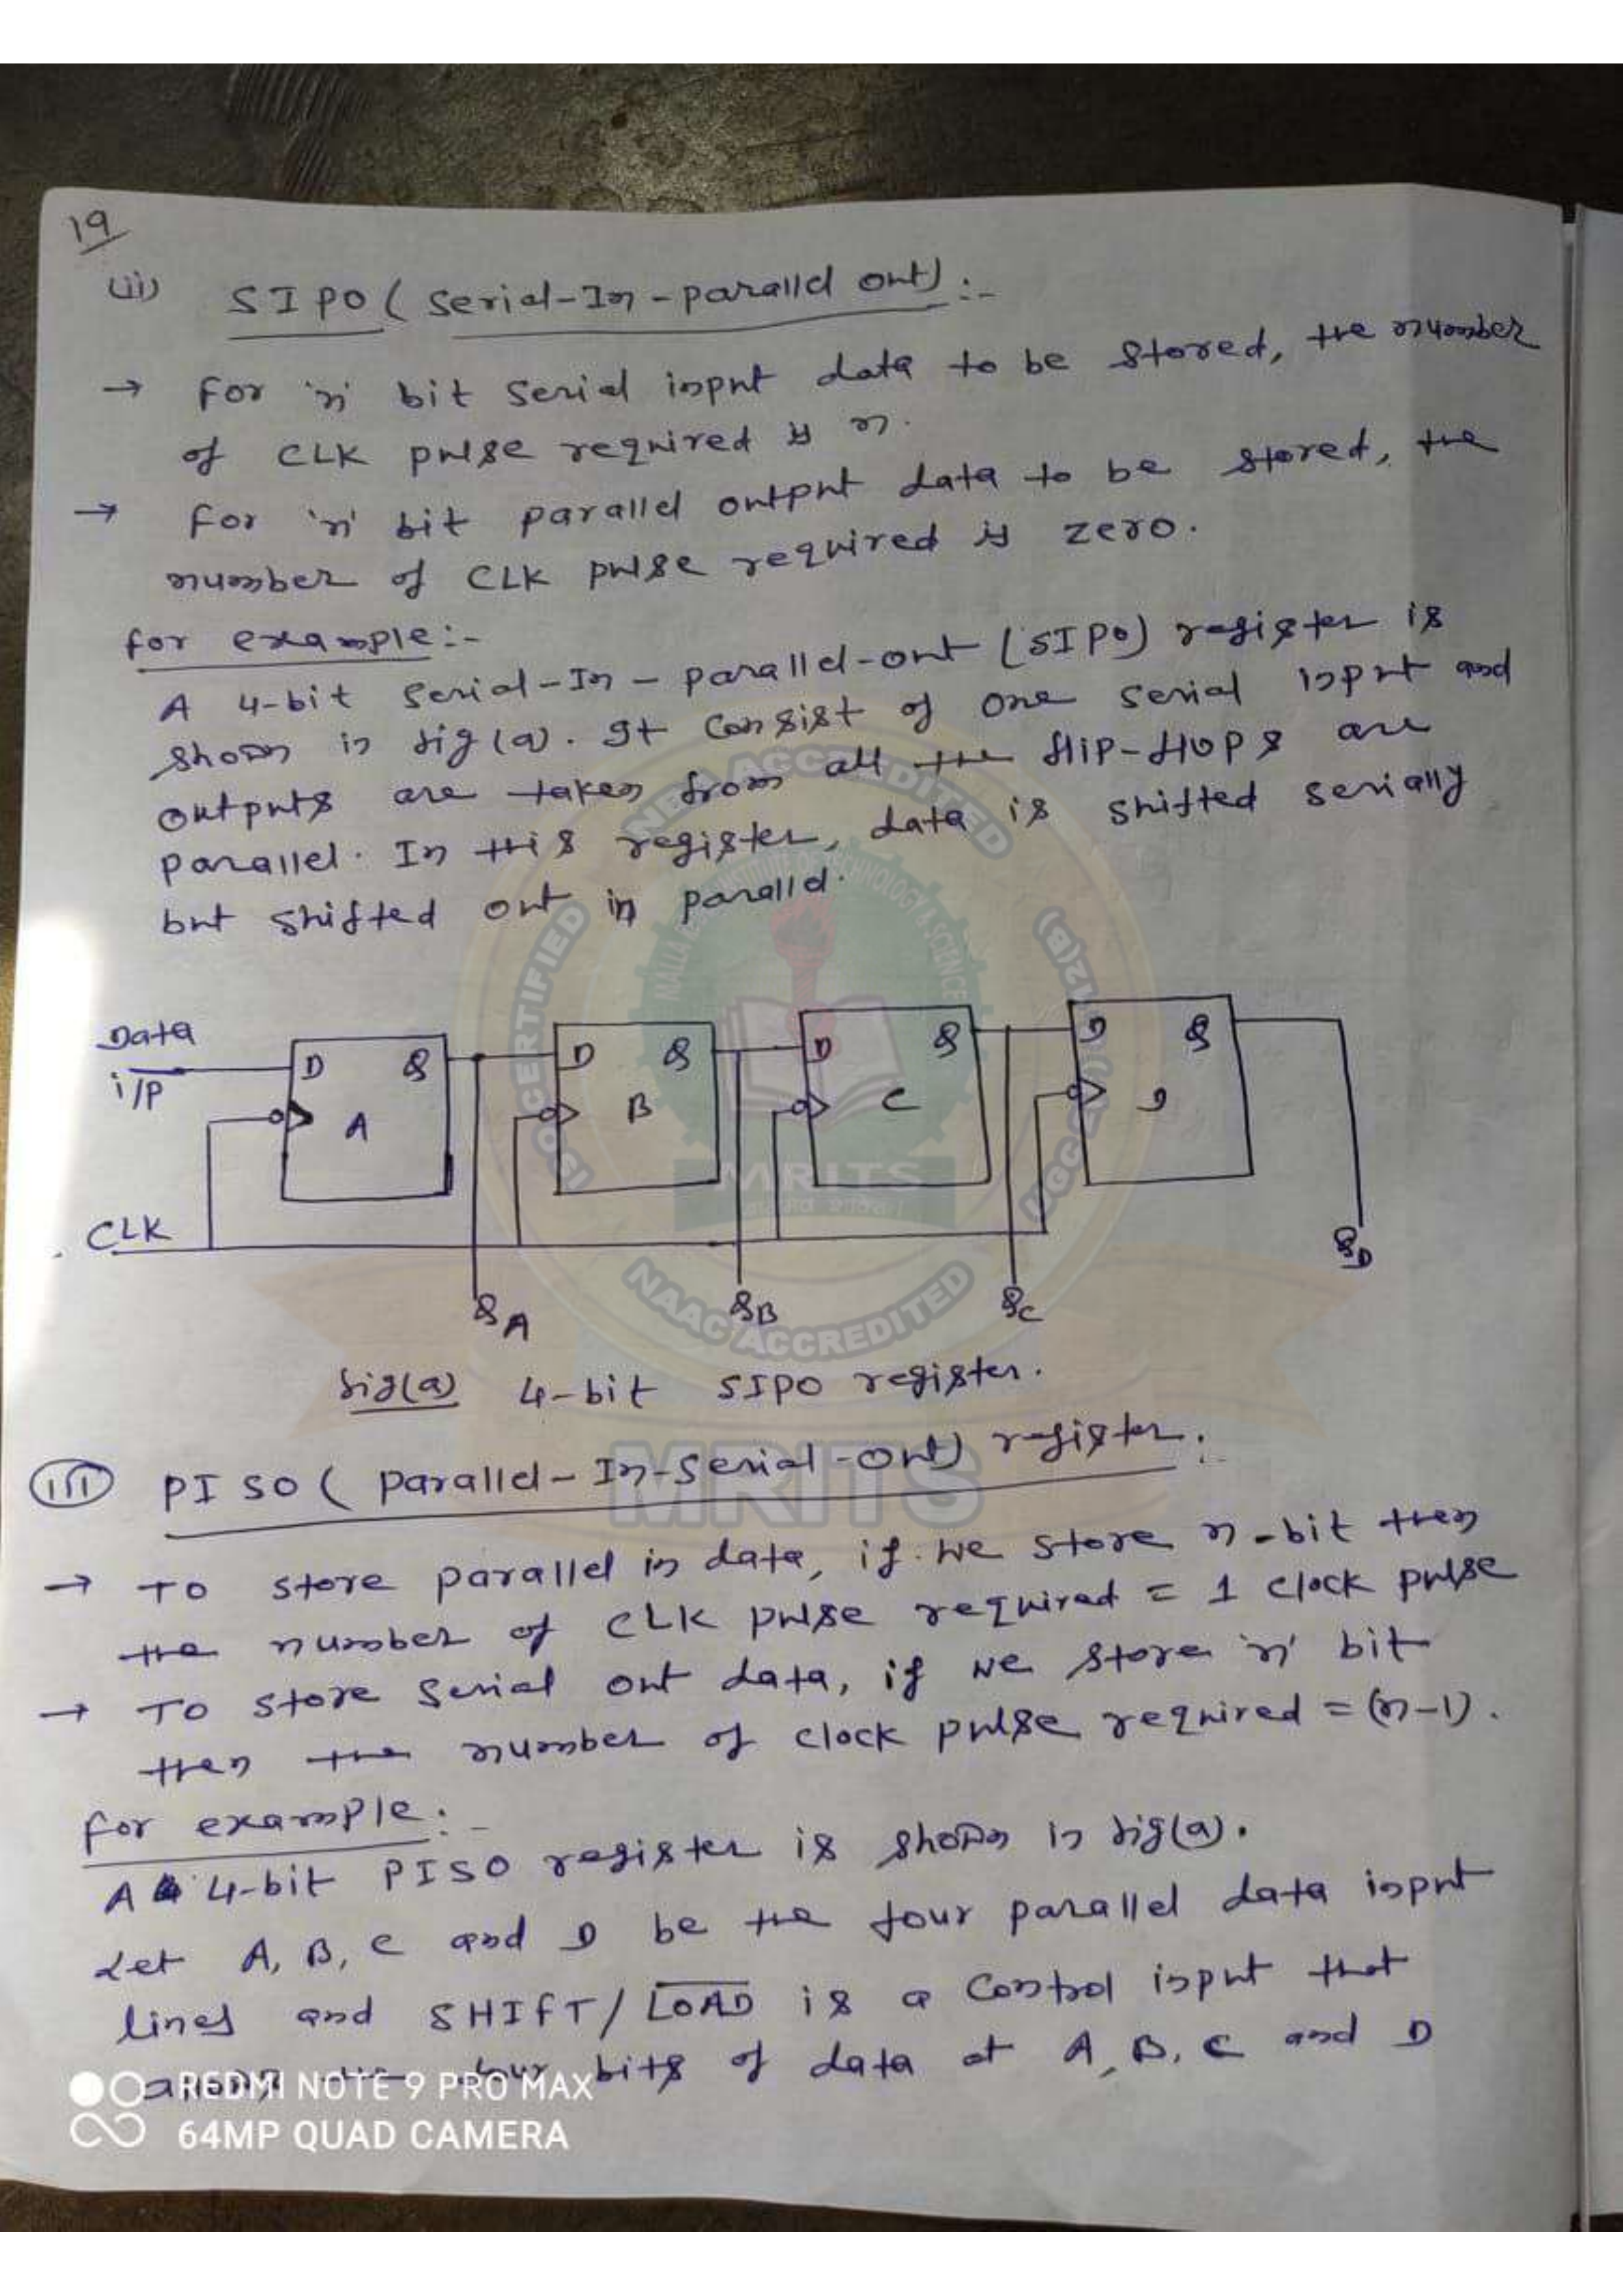 19
(ii) SIPO ( Serial-In-parallel out) :-
→ For 'n' bit serial input data to be stored, the number
of CLK pulse required is n.
→ For 'n' bit parallel output data to be stored, the
number of CLK pulse required is zero.
for example:-
A 4-bit Serial-In-parallel-out (SIPO) register is
shown in fig(a). It consist of one serial input and
outputs are taken from all the flip-flops are
parallel. In this register, data is shifted serially
but shifted out in parallel.
Data
i/P
D Q
A
D Q
B
D Q
C
D Q
D
CLK
QA
QB
QC
QD
fig(a) 4-bit SIPO register.
(iii) PISO ( parallel-In-Serial-Out) register:-
→ To store parallel in data, if we store n-bit then
the number of CLK pulse required = 1 clock pulse
→ To store serial out data, if we store 'n' bit
then the number of clock pulse required = (n-1).
for example:-
A 4-bit PISO register is shown in fig(a).
Let A, B, C and D be the four parallel data input
lines and SHIFT/L̅O̅A̅D̅ is a control input that
four bits of data at A, B, C and D
REDMI NOTE 9 PRO MAX
64MP QUAD CAMERA
NBA ACCREDITED
ISO CERTIFIED
NAAC ACCREDITED
MRITS
MRITS